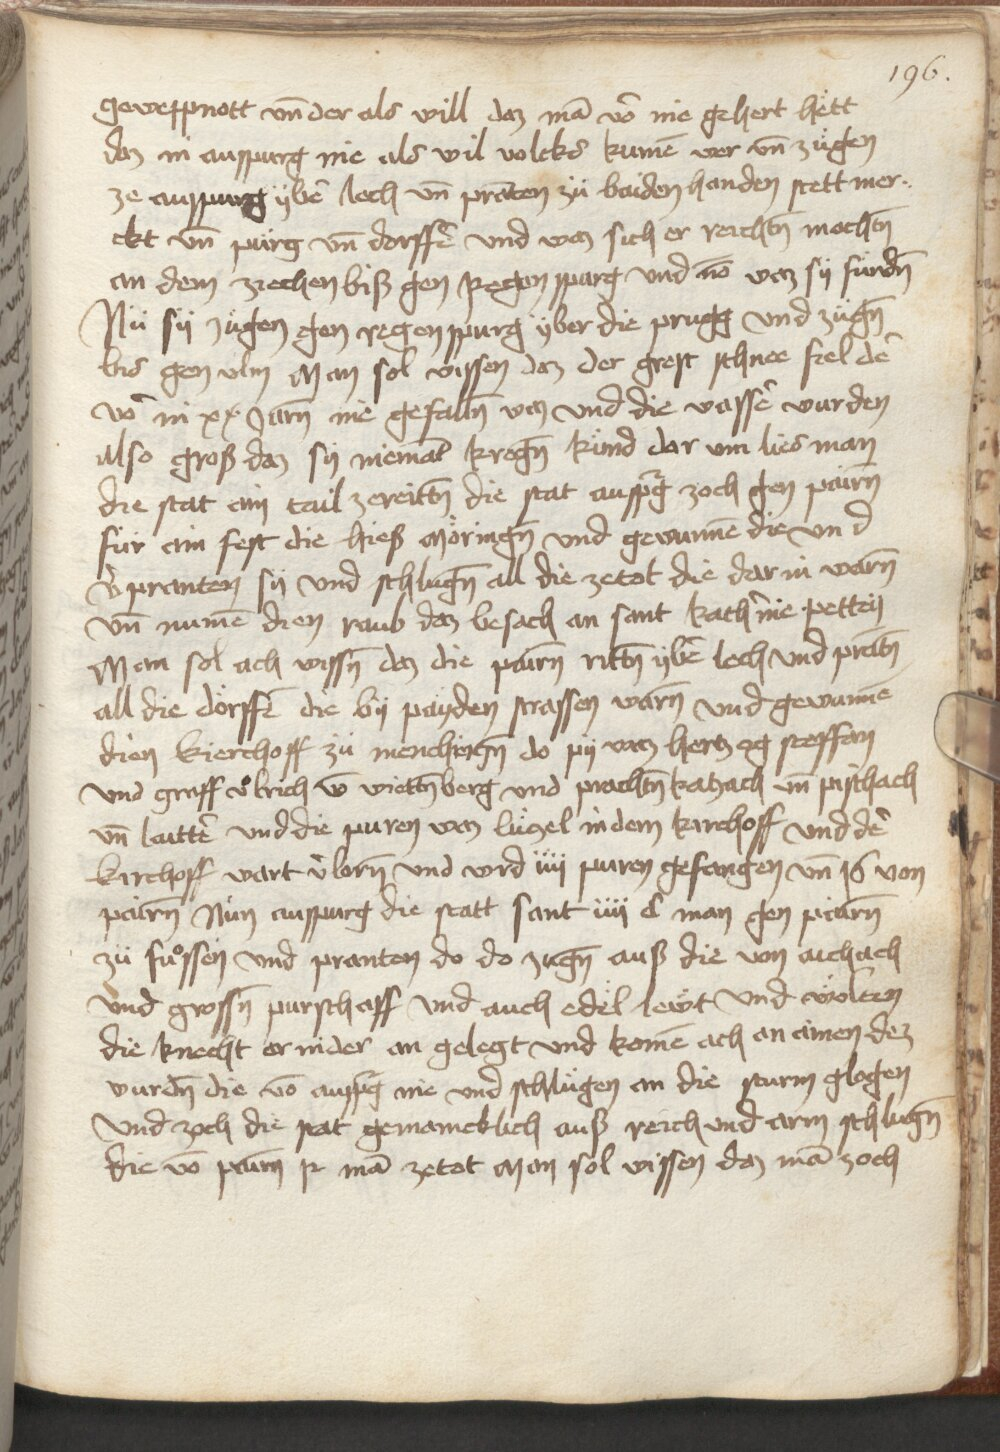 196.
geweppnott vn̄der als will daz mā vō nie gehert hëtt
daz in auspurg nie als wil volcks kumē wer vn̄ zügen
ze auspurg ÿbē lech vn̄ prāten zü baiden handen stett mer⸗
ckt vn̄ pürg vn̄ dorffē und waz sich er reichtn̄ mochtn̄
an dem zrechen biß gen Regenspurg und nō waz sÿ fundn̄
Nü sÿ zügen gen regenspurg ÿber die prugg und zügn̄
bis gen vlm Man sol wissen daz der grest schnee fiel dē
vō in xx Jarn̄ nie gefalln̄ waz und die wassē wurden
also groß daz sÿ niemāt kregn̄ kund dar um lies man
die stat ain tail zereittn̄ die stat ausp̄g zoch gen pairn̄
für ain fest die hieß Möringn̄ und gewunnē die und
v̄pranten sÿ und schlugn̄ all die zetot die dar in warn̄
vn̄ numē dien raub daz besach an sant kath̄nie petteÿ
Man sol ach wissn̄ daz die pairn̄ rittn̄ ÿbē lech und prātn̄
all die dörffē die bÿ paÿden strassen warn̄ und gewunnē
dien kierchoff zü menchingn̄ do pÿ waz hertzog steffan
und graff uͦlrich vō wirttn̄berg und prachtn̄ katzach vn̄ pischach
vn̄ lauttē und die puren waz lüzel in dem kirchoff und dē
kirchoff wart v̄lorn̄ und wrd iiij puren gefangen vn̄ 16 von
pairn̄ Nün auspurg die statt sant iiij c man gen piairn̄
zü fuͦssen und pranten do do zugn̄ auß die von aichach
und grossn̄ purschaff und auch edel lewt und wölten
die knecht er nider an gelegt und komē ach an ainen dez
wurdn̄ die vō ausp̄g nie und schlügen an die sturm glogen
und zoch die stat gemaineklich auß reich und arm schlugn̄
die vō pairn̄ lx mā zetot Man sol wissen daz mā zoch